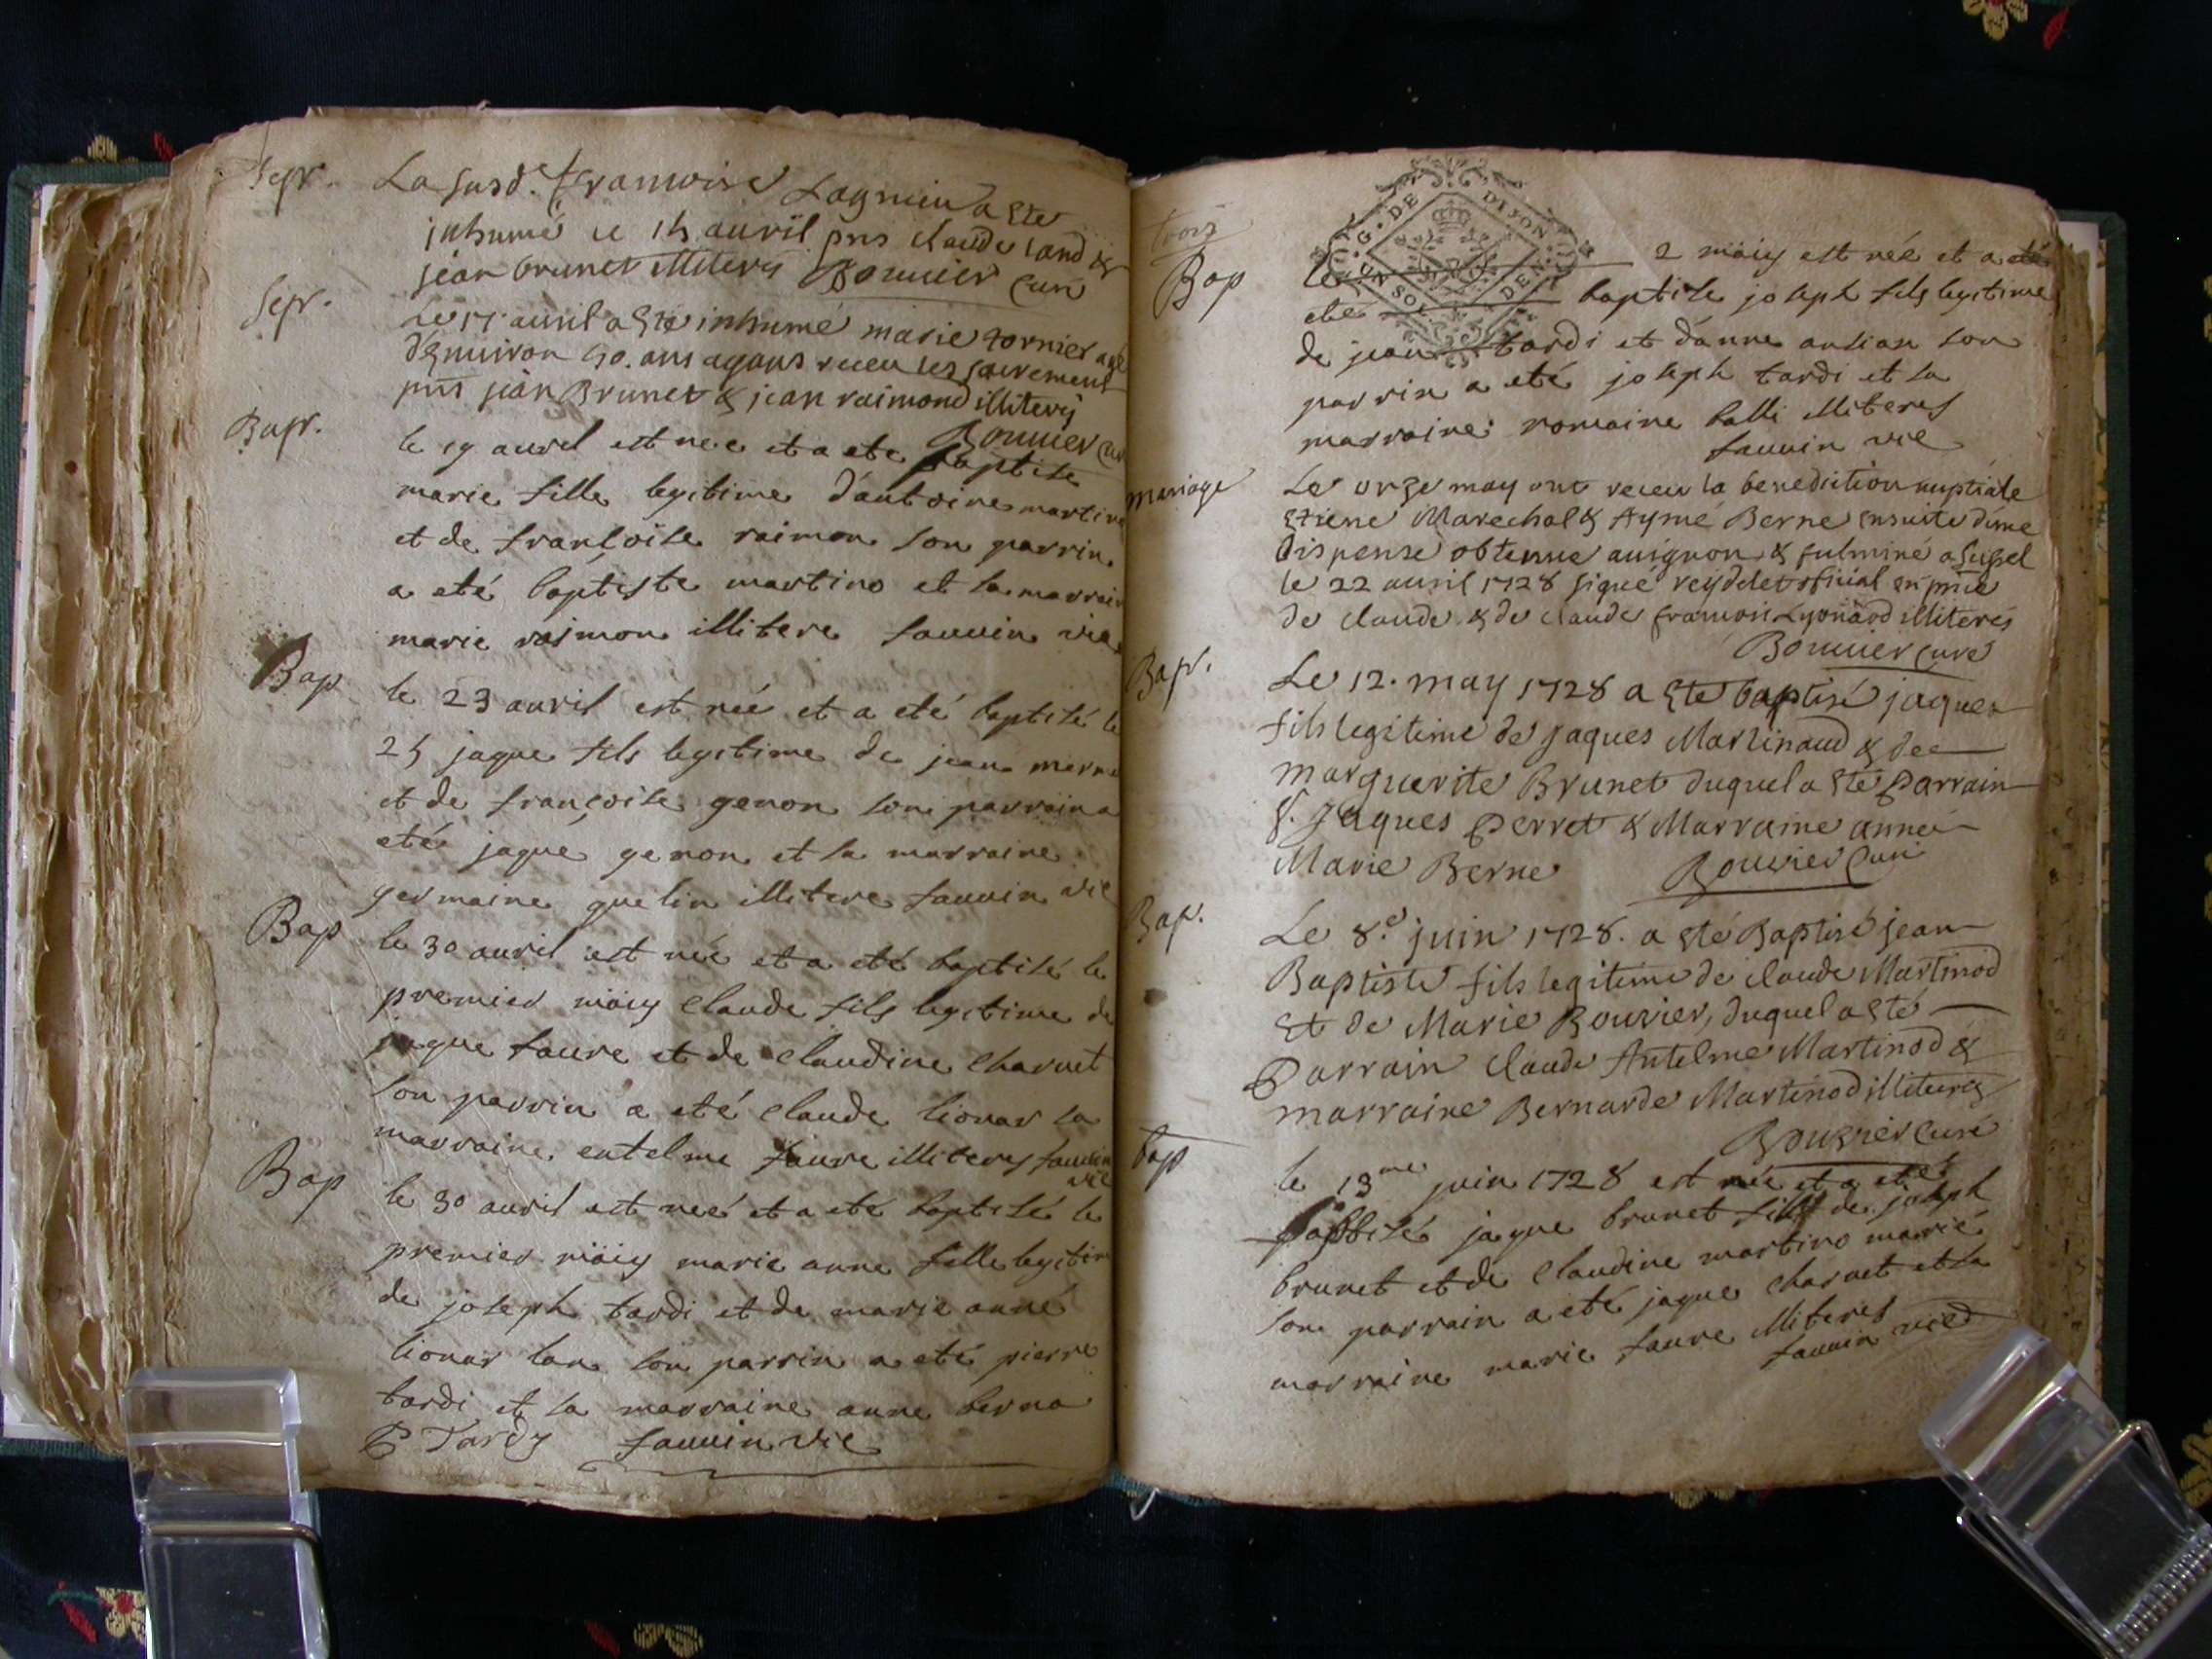 Sepr. La susd.e francoise Lagnieu a Eté
inhumé le 15 avril pns claude land &
jean brunet illiterés Bouuier Curé
Sepr. Le 17 auril a Eté inhumé marie tornier agé
d'Enuiron 50. ans ayans receu les sacrement
pns jean Brunet & jean raimond illiterés
Bouuier Cur
Bapt. le 19 auril est neé et a eté baptise
marie fille legitime d'antoine martino
et de francoise raimon son parrin
a eté baptiste martino et la marrain
marie raimon illitere fauuin vic
Bap le 23 auril est neé et a eté baptisé le
25 jaque fils legitime de jean
et de françoise genon son parrain a
eté jaque genon et la marraine
germaine guelin illitere fauuin vic
Bap le 30 auril est neé et a eté baptisé le
premier maiy claude fils legitime de
jaque faure et de claudine charuet
son parrin a eté claude lionar la
marraine entelme faure illiteres fauuin
vic
Bap le 30 auril est neé et a eté baptisé le
premier maiy marie anne fille legitim
de joseph tardi et de marie anne
lionar son parrin a eté pierre
tardi et la marraine anne berna
P Tardy fauuin vic
trois
G. DE DIJON
Bap le 2 maiy est neé et a eté
eté baptise joseph fils legitime
de jean tardi et d'anne ansian son
parrin a eté joseph tardi et la
marraine romaine balli illiteres
fauuin vic
mariage Le onze may ont receu la benediction nuptiale
Etiene Marechal & Aymé Berne ensuite d'une
dispense obtenue auignon & fulminé a
le 22 auril 1728 signé reydelet official En pnce
de claude & de claude francois Lyonard illiterés
Bouuier curé
Bapt. Le 12. may 1728 a Eté baptisé jaques
fils legitime de jaques Martinaud & de
marguerite Brunet duquel a Eté parrain
s. Jaques perret & Marraine anne
Marie Berne Bouvier Curé
Bap. Le 8.e juin 1728. a Eté Baptisé jean
Baptiste fils legitime de claude Martinod
Et de Marie Bouvier, duquel a Eté
Parrain claude Antelme Martinod &
marraine Bernarde Martinod illiterés
Bouvier Curé
bap le 13me juin 1728 est neé et a eté
baptisé jaque brunet fils de joseph
brunet et de claudine martino marié
son parrain a eté jaque charuet et la
marraine marie faure illiteres
fauuin vic